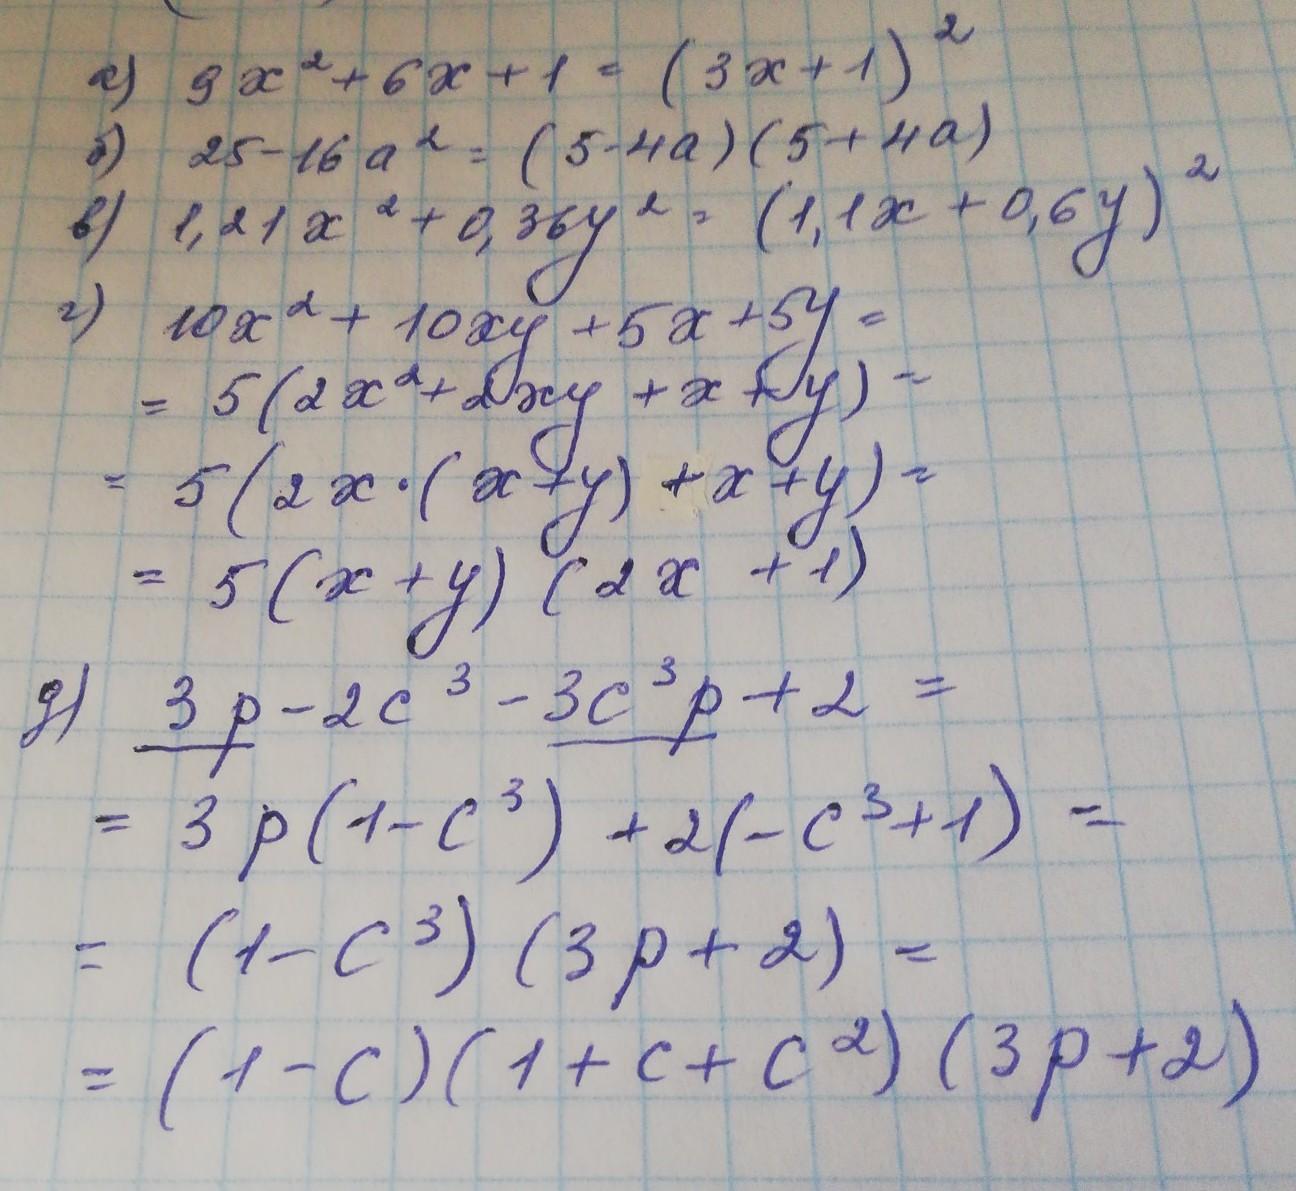 а) 9x² + 6x + 1 = (3x + 1)²
б) 25 - 16a² = (5 - 4a)(5 + 4a)
в) 1,21x² + 0,36y² = (1,1x + 0,6y)²
г) 10x² + 10xy + 5x + 5y =
= 5(2x² + 2xy + x + y) =
= 5(2x · (x + y) + x + y) =
= 5(x + y)(2x + 1)
д) 3p - 2c³ - 3c³p + 2 =
= 3p(1 - c³) + 2(-c³ + 1) =
= (1 - c³)(3p + 2) =
= (1 - c)(1 + c + c²)(3p + 2)